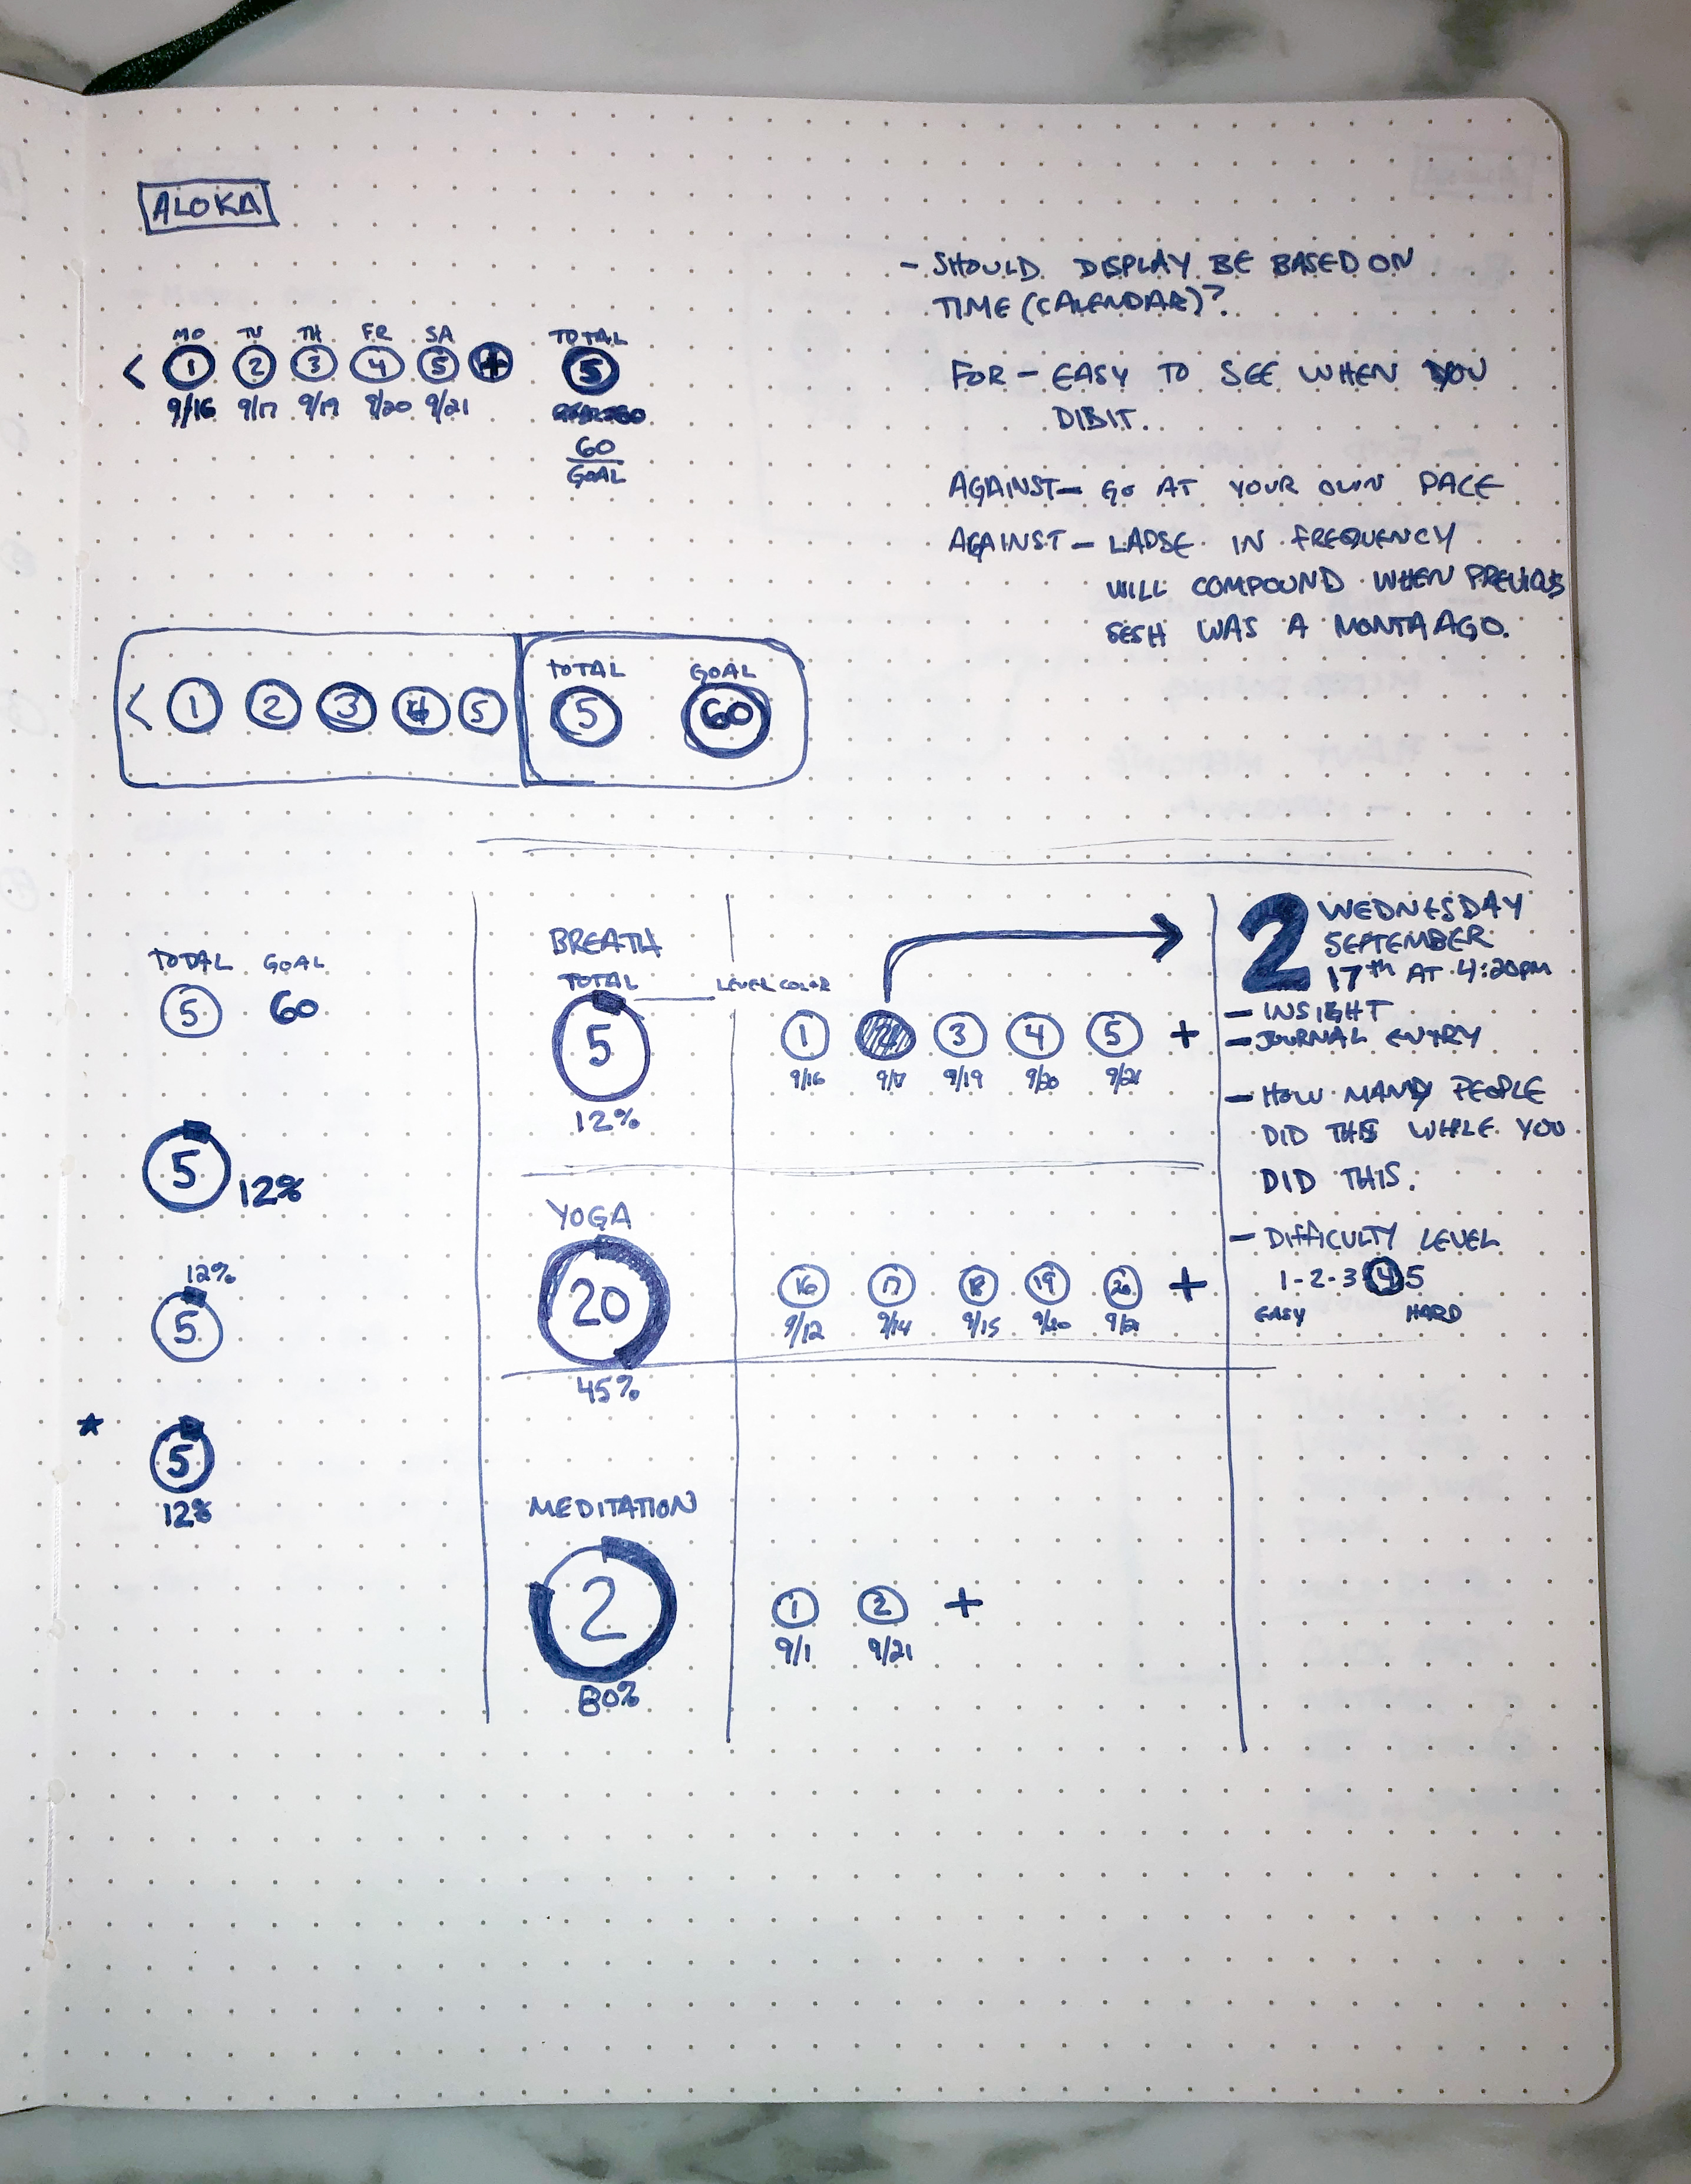 ALOKA
- SHOULD DISPLAY BE BASED ON
TIME (CALENDAR)?
FOR - EASY TO SEE WHEN YOU
DIBIT.
AGAINST - GO AT YOUR OWN PACE
AGAINST - LADSE IN FREQUENCY
WILL COMPOUND WHEN PREVIOUS
SESH WAS A MONTH AGO.
MO TU TH FR SA TOTAL
< 1 2 3 4 5 + 5
9/16 9/17 9/19 9/20 9/21
60
GOAL
TOTAL GOAL
< 1 2 3 4 5 5 60
TOTAL GOAL
5 60
5 12%
12%
5
★ 5
12%
BREATH
TOTAL
LEVEL COLOR
5
12%
1 2 3 4 5 +
9/16 9/17 9/19 9/20 9/21
YOGA
20
45%
16 17 18 19 20 +
9/12 9/14 9/15 9/21
MEDITATION
2
80%
1 2 +
9/1 9/21
2 WEDNESDAY
SEPTEMBER
17th AT 4:20PM
- INSIGHT
- JOURNAL ENTRY
- HOW MANY PEOPLE
DID THIS WHILE YOU
DID THIS.
- DIFFICULTY LEVEL
1-2-3 4 5
EASY HARD